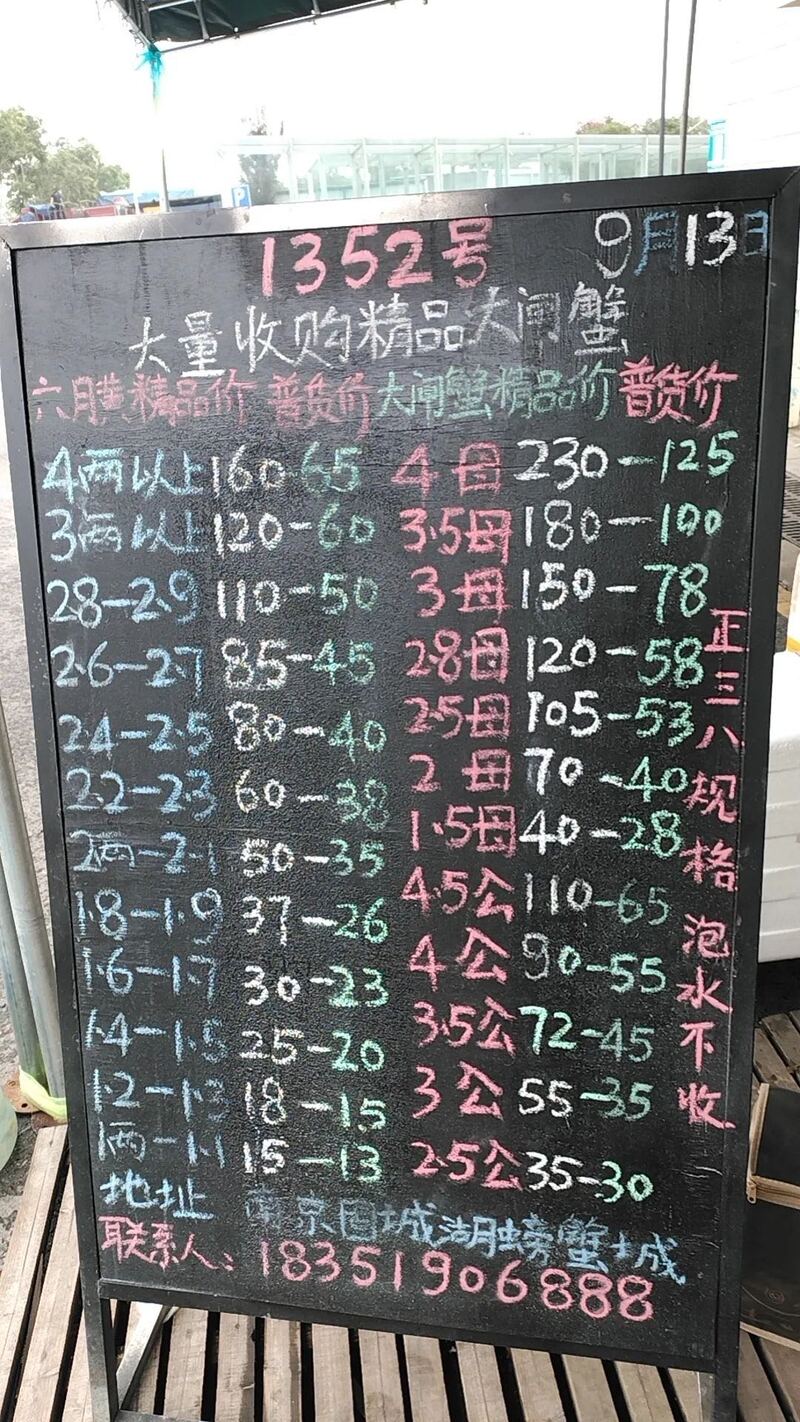 1352号 9月13日
大量收购精品大闸蟹
六月黄精品价 普货价 大闸蟹精品价 普货价
4两以上 160-65 4母 230-125
3两以上 120-60 3.5母 180-100
28-2.9 110-50 3母 150-78
2.6-2.7 85-45 2.8母 120-58
24-2.5 80-40 2.5母 105-53
2.2-2.3 60-38 2母 70-40
2两-2.1 50-35 1.5母 40-28
1.8-1.9 37-26 4.5公 110-65
1.6-1.7 30-23 4公 90-55
1.4-1.5 25-20 3.5公 72-45
1.2-1.3 18-15 3公 55-35
1两-1.1 15-13 2.5公 35-30
正三八规格 泡水不收
地址 南京固城湖螃蟹城
联系人:18351906888
P